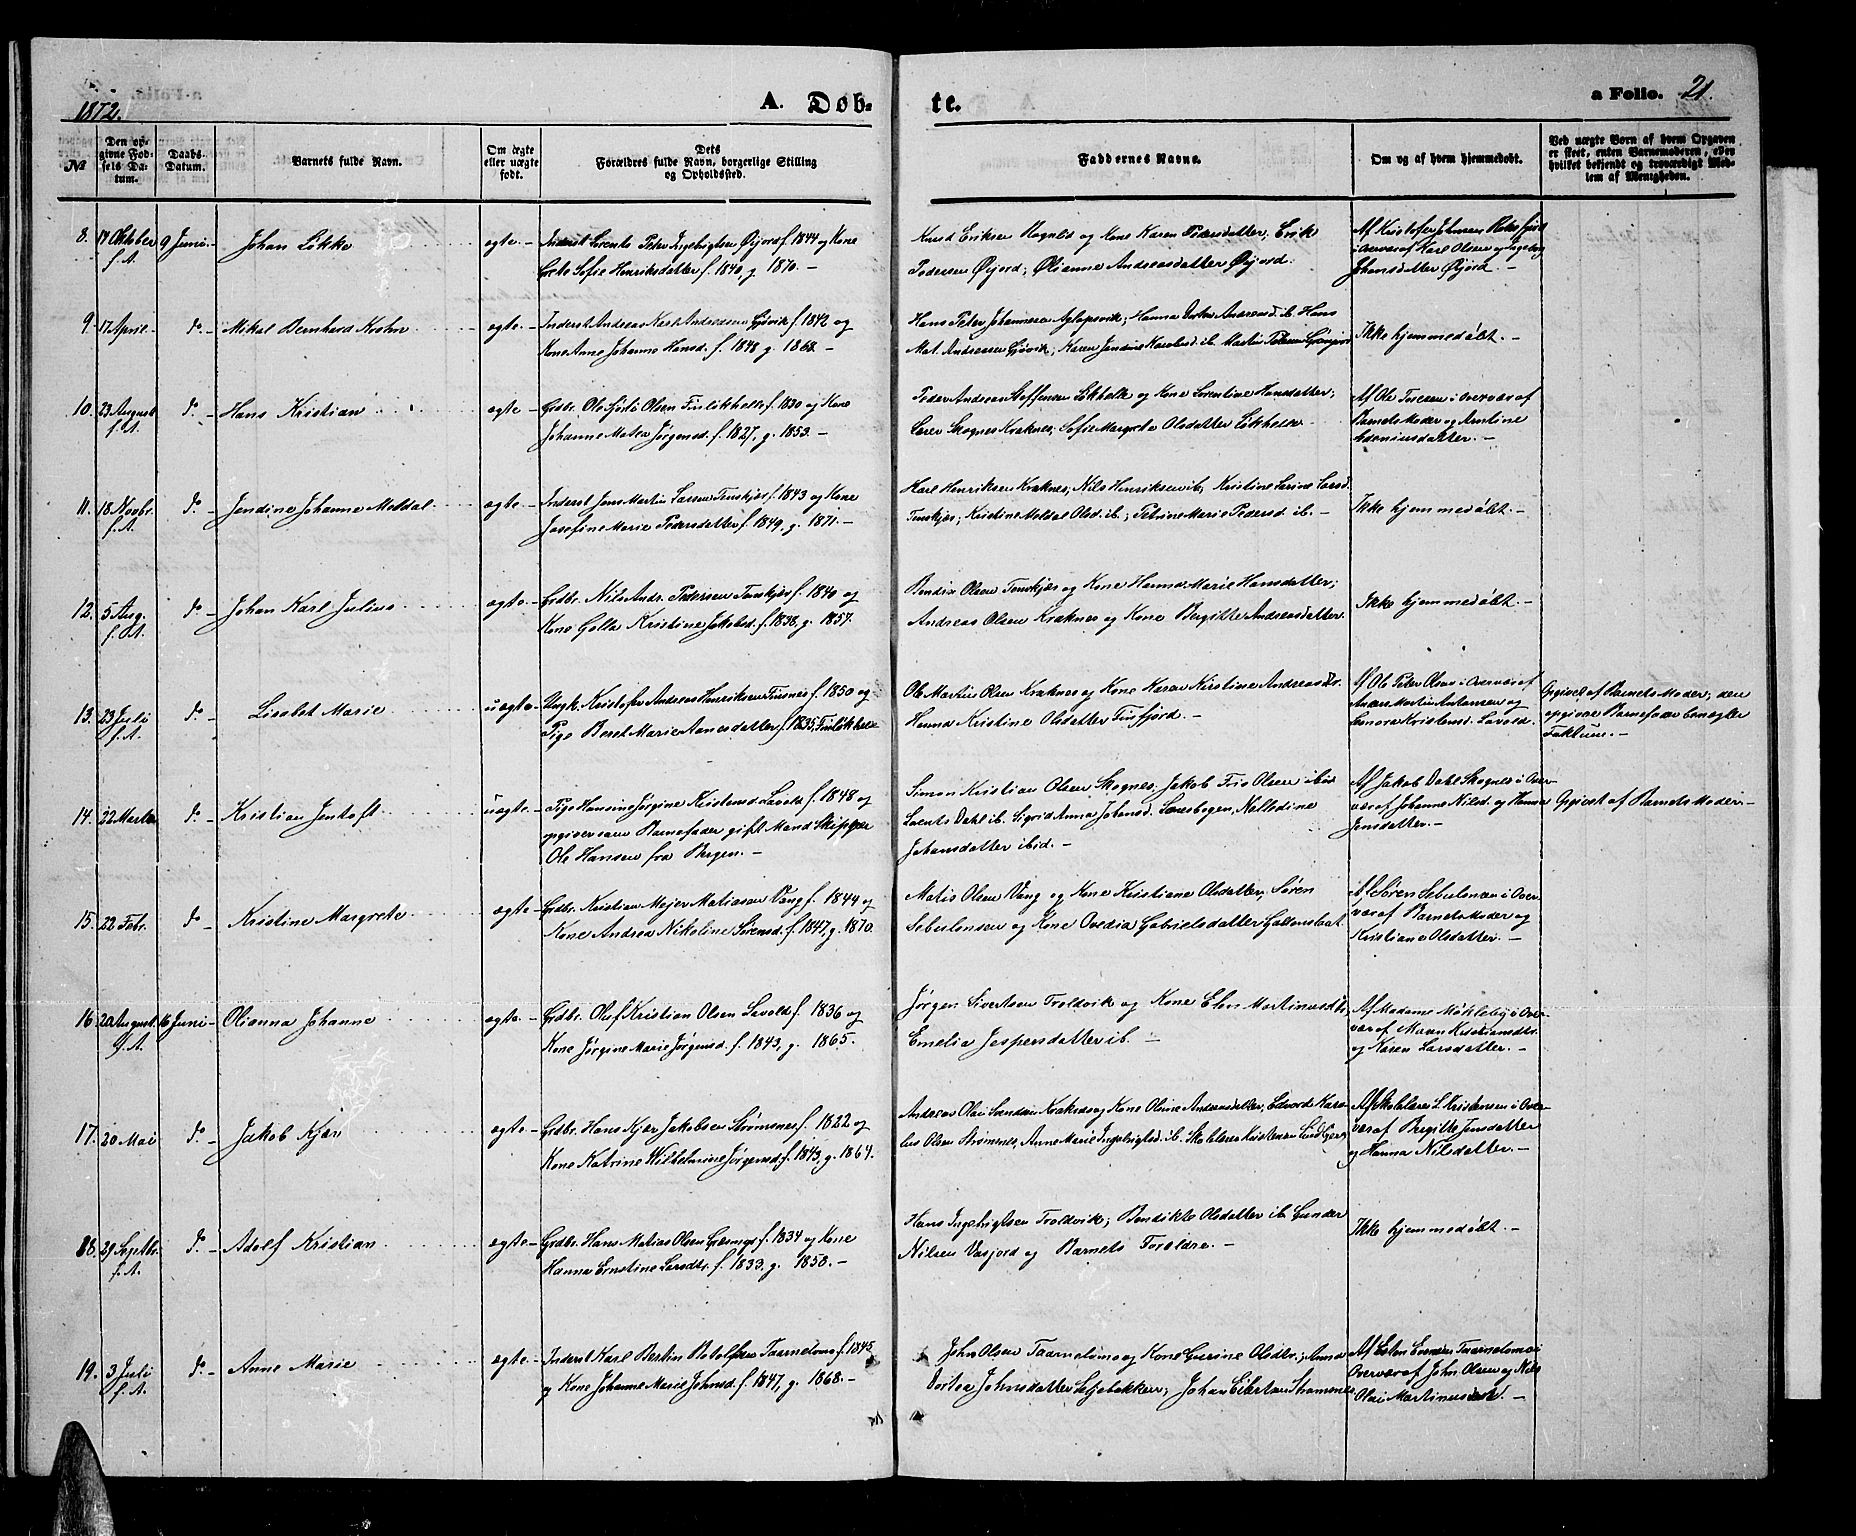 1872.
A. Døb-
te.
a Folio. 21.
№
Den op-
givne Fød-
sels Da-
tum.
Daabs-
Datum.
Barnets fulde Navn.
Om ægte
eller uægte
født.
Dets
Forældres fulde Navn, borgerlige Stilling
og Opholdssted.
Faddernes Navne.
Om og af hvem hjemmedøbt.
Ved uægte Børn af hvem Opgaven
er skeet, enten Barnemoderen, eller
hvilket bekjendt og troværdigt Med-
lem af Menigheden.
8. 17 Oktober f.A. 9 Juni. Johan Løkke ægte.
Inderst Lorents Peter Ingebrigtsen Øijord f. 1844 og Kone
Grete Sofie Henriksdatter f. 1840, g. 1870. –
Knud Eriksen Hognes og Kone Karen Pedersdatter; Erik
Pedersen Øijord; Olianne Andreasdatter Øijord.
Af Kristofer Johansen
i Overvær af Karl Olsen og Ingeborg
Johansdatter Øijord. –
9. 17 April. do – Mikal Bernhard Krohn ægte. –
Inderst Andreas Kark Andreassen Gjøvik f. 1842 og
Kone Anne Johanne Hansd. f. 1848 g. 1868. –
Hans Peter Johannesen Aglapsvik; Hanna Andreasd. ib. Hans
Mat. Andreassen Gjøvik; Karen Jendine Karolusd. ib. Martin Petersen
Ikke hjemmedøbt. –
10. 23 August f.A. do – Hans Kristian ægte –
Grdbr. Ole Olsen Finlikhelle f. 1830 og Kone
Johanne Matea Jørgensd. f. 1827, g. 1853. –
Peder Andreas Steffensen Likhelle og Kone Lorentine Hansdatter;
Skognes Kraknes; Sofie Margrete Olsdatter Likhelle
Af Ole i Overvær af
Barnets Moder og Arntine
Edoniusdatter. –
11. 18 Novbr. f.A. do – Jendine Johanne Meldal ægte. –
Inderst Jens Martin Larsen Tenskjær f. 1843 og Kone
Josefine Marie Pedersdatter f. 1849, g. 1871. –
Karl Henriksen Kraknes; Nils Henriksen ib., Kristine Larine Larsd.
Tenskjær; Kristine Meldal Olsd. ib.; Petrine Marie Pedersd. ib. –
Ikke hjemmedøbt. –
12. 5 Aug. f.A. do – Johan Karl Julius ægte. –
Grdbr. Nils Andr. Pedersen Tenskjær f. 1840 og
Kone Golla Kristine Jakobsd. f. 1838, g. 1857.
Bendix Olsen Tenskjær og Kone Hanna Marie Hansdatter;
Andreas Olsen Kraknes og Kone Bergitte Andreasdatter.
Ikke hjemmedøbt. –
13. 23 Juli f.A. do – Lisabet Marie uægte. –
Ungk. Kristofer Andreas Henriksen Finsnes f. 1850 og
Pige Beret Marie Aanesdatter f. 1835, Finlikhelle
Ole Martin Olsen Kraknes og Kone Karen Kirstine Andreasdtr.
Hanna Kristine Olsdatter Finfjord. –
Af Ole Peter Olsen i Overvær af
Anders Martin Antonsen og
Lenora Kristensd. Lavold.
Opgivet af Barnets Moder; den
opgivne Barnefader benægter
Faktum. –
14. 22 Marts do – Kristian Jentoft uægte. –
Pige Hansine Jørgine Kristensd. Lavold f. 1848 og
opgiver som Barnefader gift Mand Skipper
Ole Hansen fra Bergen. –
Simon Kristian Olsen Skognes, Jakob Friis Olsen ibid
Lorents Dahl ib. Sigrid Anna Johansd. Lanesbogen, Nellidine
Johansdatter ibid. –
Af Jakob Dahl Skognes i Over-
vær af Johanne Nilsd. og Hansine
Jensdatter. –
Opgivet af Barnets Moder. –
15. 22 Febr. do – Kristine Margrete ægte –
Grdbr. Kristian Mejer Matiassen Vang f. 1844 og
Kone Andrea Nikoline Sørensd. f. 1847, g. 1870.
Matis Olsen Vang og Kone Kristiane Olsdatter, Søren
Sebulonsen og Kone Ovedia Gabrielsdatter
Af Søren Sebulonsen i Over-
vær af Barnets Moder og
Kristiane Olsdatter. –
16. 20 August. f.A. 16 Juni – Olianna Johanne ægte. –
Grdbr. Oluf Kristian Olsen Lavold f. 1836 og
Kone Jørgine Marie Jørgensd. f. 1843, g. 1865. –
Jørgen Sivertsen Troldvik og Kone Elen Martinusdtr.
Emelia Jespersdatter ib. –
Af Madame Møkleby i Over-
vær af Maren Kristiansdtr.
og Karen Larsdatter. –
17. 20 Mai do – Jakob Kjer ægte –
Grdbr. Hans Kjer Jakobsen Strømsnes f. 1822 og
Kone Katrine Wilhelmine Jørgensd. f. 1843, g. 1864.
Andreas Olai Svendsen Kraknes og Kone Oline Andreasdatter, Edvard Karo-
lius Olsen Strømsnes, Anne Marie Ingebrigtsd. ib. Skolelærer Kristensen
Af Skolelærer L. Kristensen i Over-
vær af Bergitte Jensdatter
og Hanna Nilsdatter. –
18. 29 Septbr. f.A. do – Adolf Kristian ægte –
Grdbr. Hans Matias Olsen Græsmyr f. 1834 og Kone
Hanna Ernstine Larsdtr. f. 1833, g. 1858. –
Hans Ingebrigtsen Troldvik; Bendikte Olsdatter ib. Gunder
Nilsen Vasjord og Barnets Forældre. –
Ikke hjemmedøbt. –
19. 3 Juli f.A. do – Anne Marie ægte –
Inderst Karl Bertin Botolfsen Taarnelvmo f. 1845
og Kone Johanne Marie Johnsd. f. 1847, g. 1868. –
John Olsen Taarnelvmo og Kone Gurine Olsdtr.; Anna
Dortea Johnsdatter Seljebakken; Johan Eilertsen Strømsnes
Af Elen Taarnelvmo i
Overvær af John Olsen og Nils
Olai Martinussen. –